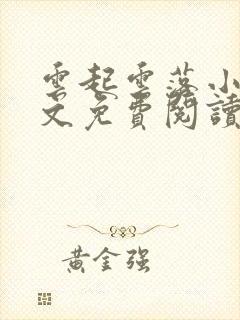 雲起雲落小
文免費閱讀
黃金強